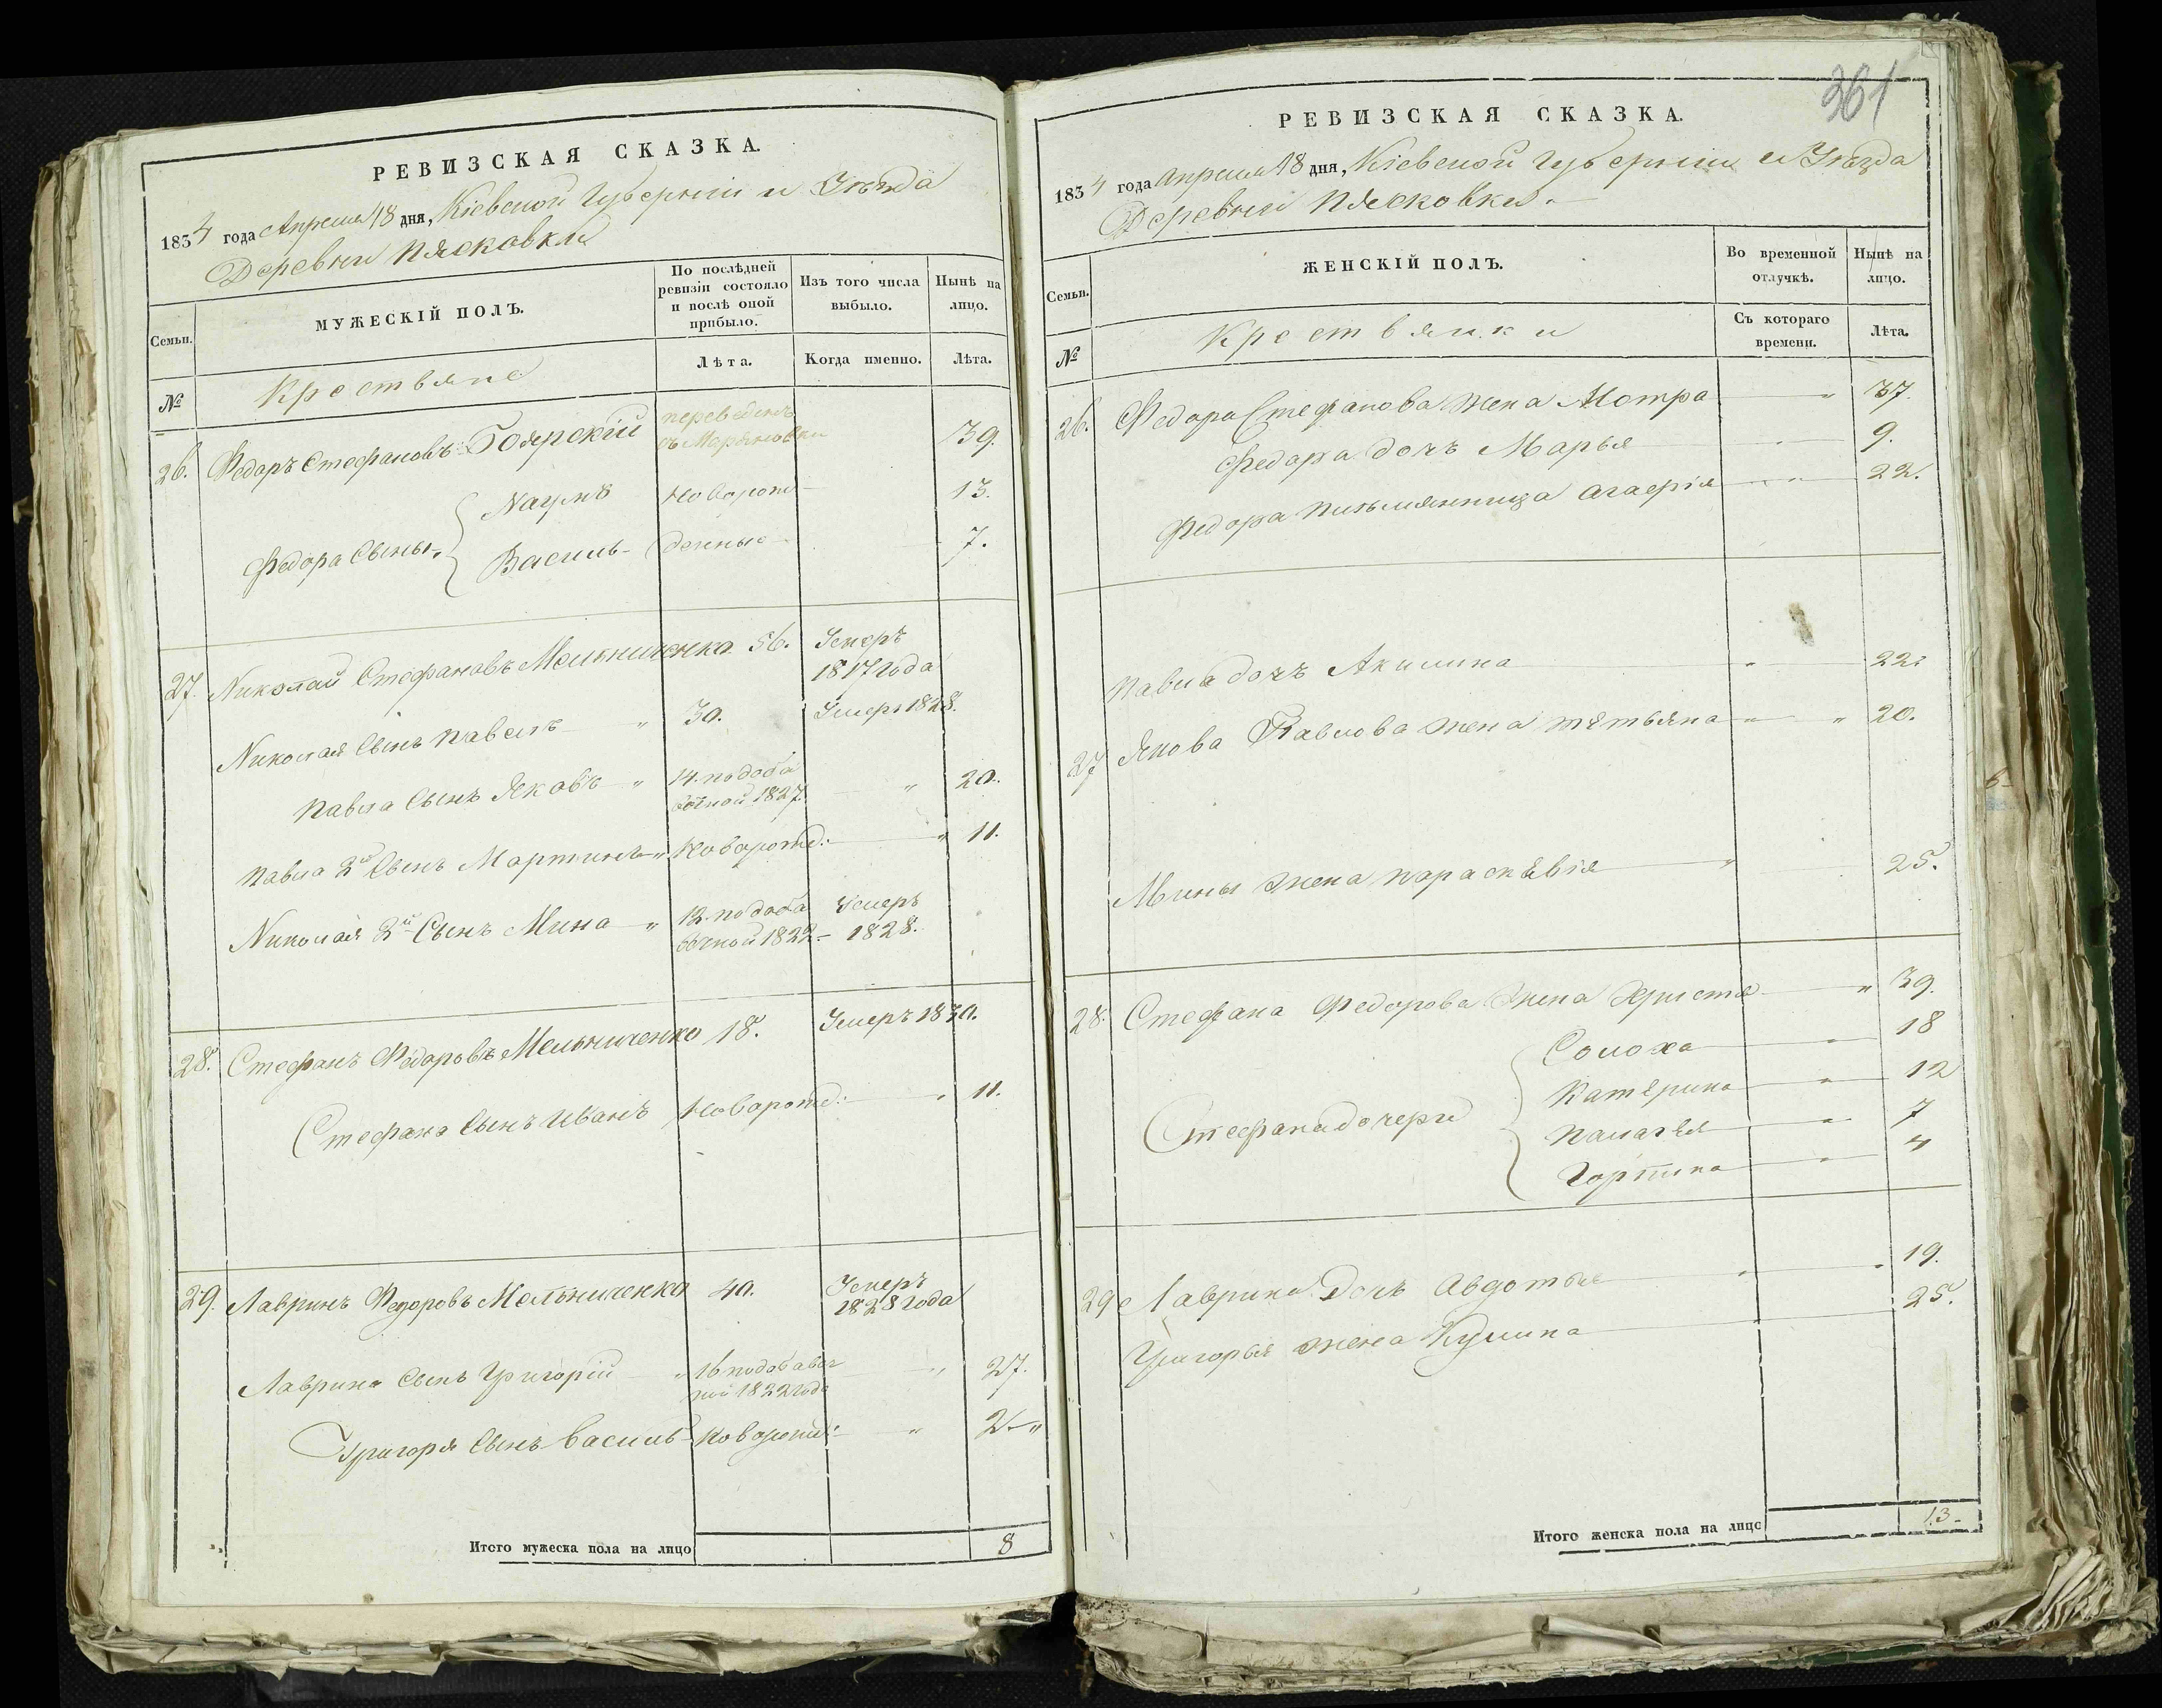 РЕВИЗСКАЯ СКАЗКА.
1834 года Апреля 18 дня, Кіевской Губерніи и Уѣзда
Деревни Пясковки
Семьи.
МУЖЕСКІЙ ПОЛЪ.
По послѣдней
ревизіи состояло
и послѣ оной
прибыло.
Изъ того числа
выбыло.
Нынѣ на
лицо.
№
Крестьяне
Лѣта.
Когда именно.
Лѣта.
26. Федоръ Стефановъ Боярский переведенъ съ Марьяновки 39.
Федора Сыны Наумъ Новорож 13.
Василь денные 7.
27. Николай Стефановъ Мельниченко 56. Умеръ
1817 года
Николая Сынъ Павелъ " 30. Умеръ 1828.
Павла Сынъ Яковъ " 14. по доба
вочной 1827. " 20.
Павла 2й Сынъ Мартинъ " Новорожд: " 11.
Николая 2й Сынъ Мина " 12. по доба
вочной 1822 - Умеръ
1828.
28. Стефанъ Федоровъ Мельниченко 18. Умеръ 1830.
Стефана Сынъ Иванъ Новорожд: " 11.
29. Лавринъ Федоровъ Мельниченко 40. Умеръ
1828 года
Лаврина Сынъ Григорій " 16 по добавоч
ной 1822 года " 27.
Григоря Сынъ Василь Новорожд: " 2 - "
Итого мужеска пола на лицо 8
361
РЕВИЗСКАЯ СКАЗКА.
1834 года Апреля 18 дня, Кіевской Губерніи и Уѣзда
Деревни Пясковки.
Семьи.
ЖЕНСКІЙ ПОЛЪ.
Во временной
отлучкѣ.
Нынѣ на
лицо.
№
Крестьянки
Съ котораго
времени.
Лѣта.
26. Федора Стефанова жена Мотра " 37.
Федора дочь Марья " 9.
Федора Агафія " 22.
Павла дочь Акилина " 22.
27 Якова Павлова жена Тѣтьяна " " 20.
Мины жена Параскѣвія " 25.
28. Стефана Федорова жена Христя " 39.
Стефана дочери Солоха " 18
Катѣрина " 12
Палагѣя " 7
Горпина " 4
29 Лаврина Дочь Авдотья " " 19.
Григорья жена Кулина " 25.
Итого женска пола на лицо 13 -